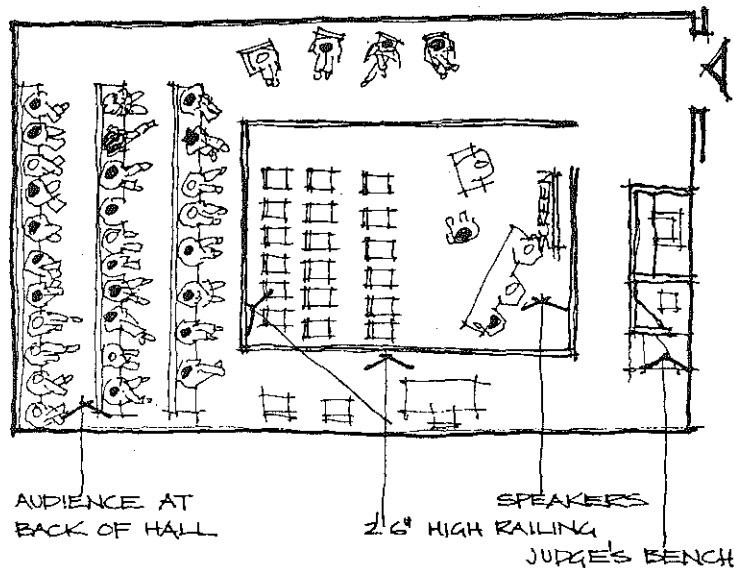 SCREEN
AUDIENCE AT
BACK OF HALL
2'6" HIGH RAILING
SPEAKERS
JUDGE'S BENCH